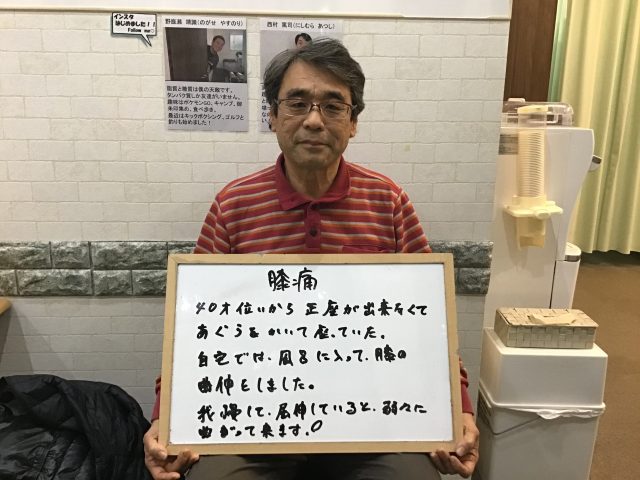 インスタ
はじめました!!
Follow me♡
野底瀬 靖識(のがせ やすのり)
脂質と糖質は僕の天敵です。
タンパク質しか友達がいません。
趣味はポケモンGO、キャンプ、御
朱印集め、食べ歩き。
最近はキックボクシング、ゴルフと
釣りも始めました!
西村 篤司(にしむら あつし)
膝痛
40才位いから正座が出来なくて
あぐらをかいて座っていた。
自宅では、風呂に入って、膝の
曲伸をしました。
我慢して、屈伸していると、弱々に
曲がって来ます。